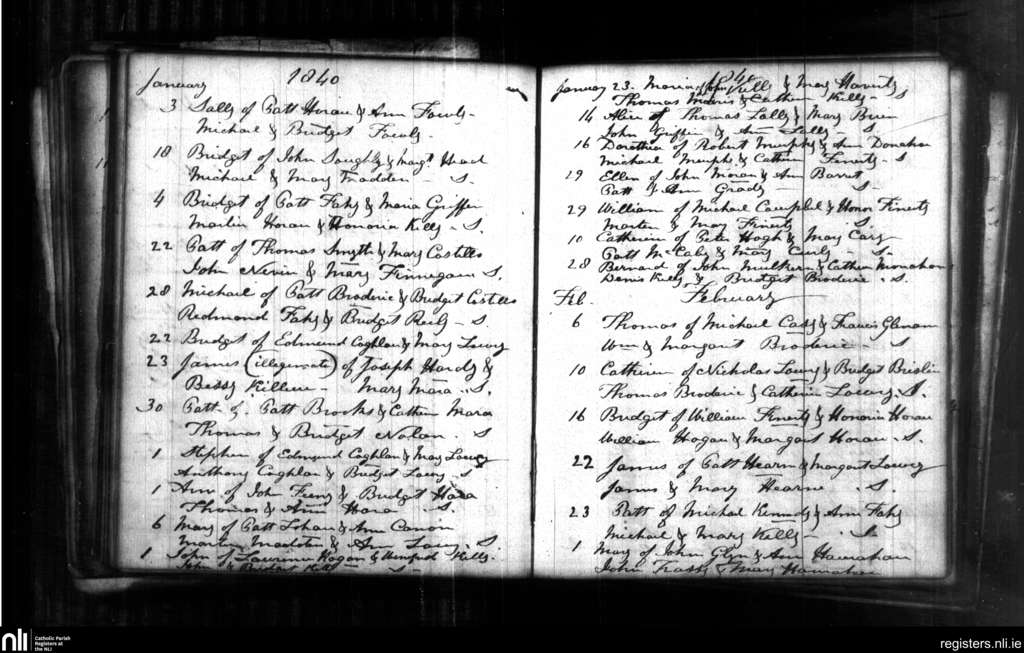 January 1840
3 Sally of Patt Horan & Ann
Michael & Bridget
18 Bridget of John & Margt Head
Michael & Mary Madden - S.
4 Bridget of Patt Fahy & Maria Griffin
Martin Horan & Honoria Kelly - S.
22 Patt of Thomas Smyth & Mary Costello
John Nevin & Mary Finnegan S.
28 Michael of Patt Broderic & Bridget Costello
Redmond Fahy & Bridget Reily - S.
22 Bridget of Edmund Coghlan & Mary Lowry
23 James (illegimate) of Joseph Hardy &
Bessy Killeen - Mary Mara .. S.
30 Patt of Patt Brooks & Cathern Mara
Thomas & Bridget Nolan . S
1 Stephen of Edmund Coghlan & Mary Lowry
Anthony Coghlan & Bridget Lowry . S
1 Ann of John Feeny & Bridget Hara
Thomas & Ann Hara . S.
6 Mary of Patt & Ann Canon
Martin Madden & Ann Lowry . S.
1 John of Lawrence Hogan & Kelly.
John & Bridget Kelly - S -
1840
January 23. Maria of John Kelly & Mary
Thomas & Cathern Kelly - S
14 Alice of Thomas Lally & Mary
John Griffin & Ann Lally - S.
16 Dorothea of Robert Murphy & Ann Donahoe
Michael Murphy & Cathern Finerty - S
29 Ellen of John Moran & Ann Barret
Patt & Ann Grady - S
29 William of Michael Campbel & Honor Finerty
Marten & Mary Finerty S.
10 Catherine of Peter Hogh & Mary
Patt McCabe & Mary - S.
28 Bernard of John Mulkern & Cathern Monahan
Denis Kelly & Bridget Broderic . S.
Feb. February
6 Thomas of Michael & Francis
Wm & Margaret Broderic - S
10 Catherin of Nicholas Lowry & Bridget
Thomas Broderic & Catherin Lowry . S.
16 Bridget of William Finerty & Honoria Horan
William Hogan & Margaret Horan . S.
22 James of Patt Hearn & Margaret Lowry
James & Mary Hearne . S.
23 Patt of Michael Kennedy & Ann Fahy
Michael & Mary Kelly - . S
1 Mary of John Glyn & Ann Hanrahan
John & Mary Hanrahan
nli Catholic Parish
Registers at
the NLI
registers.nli.ie